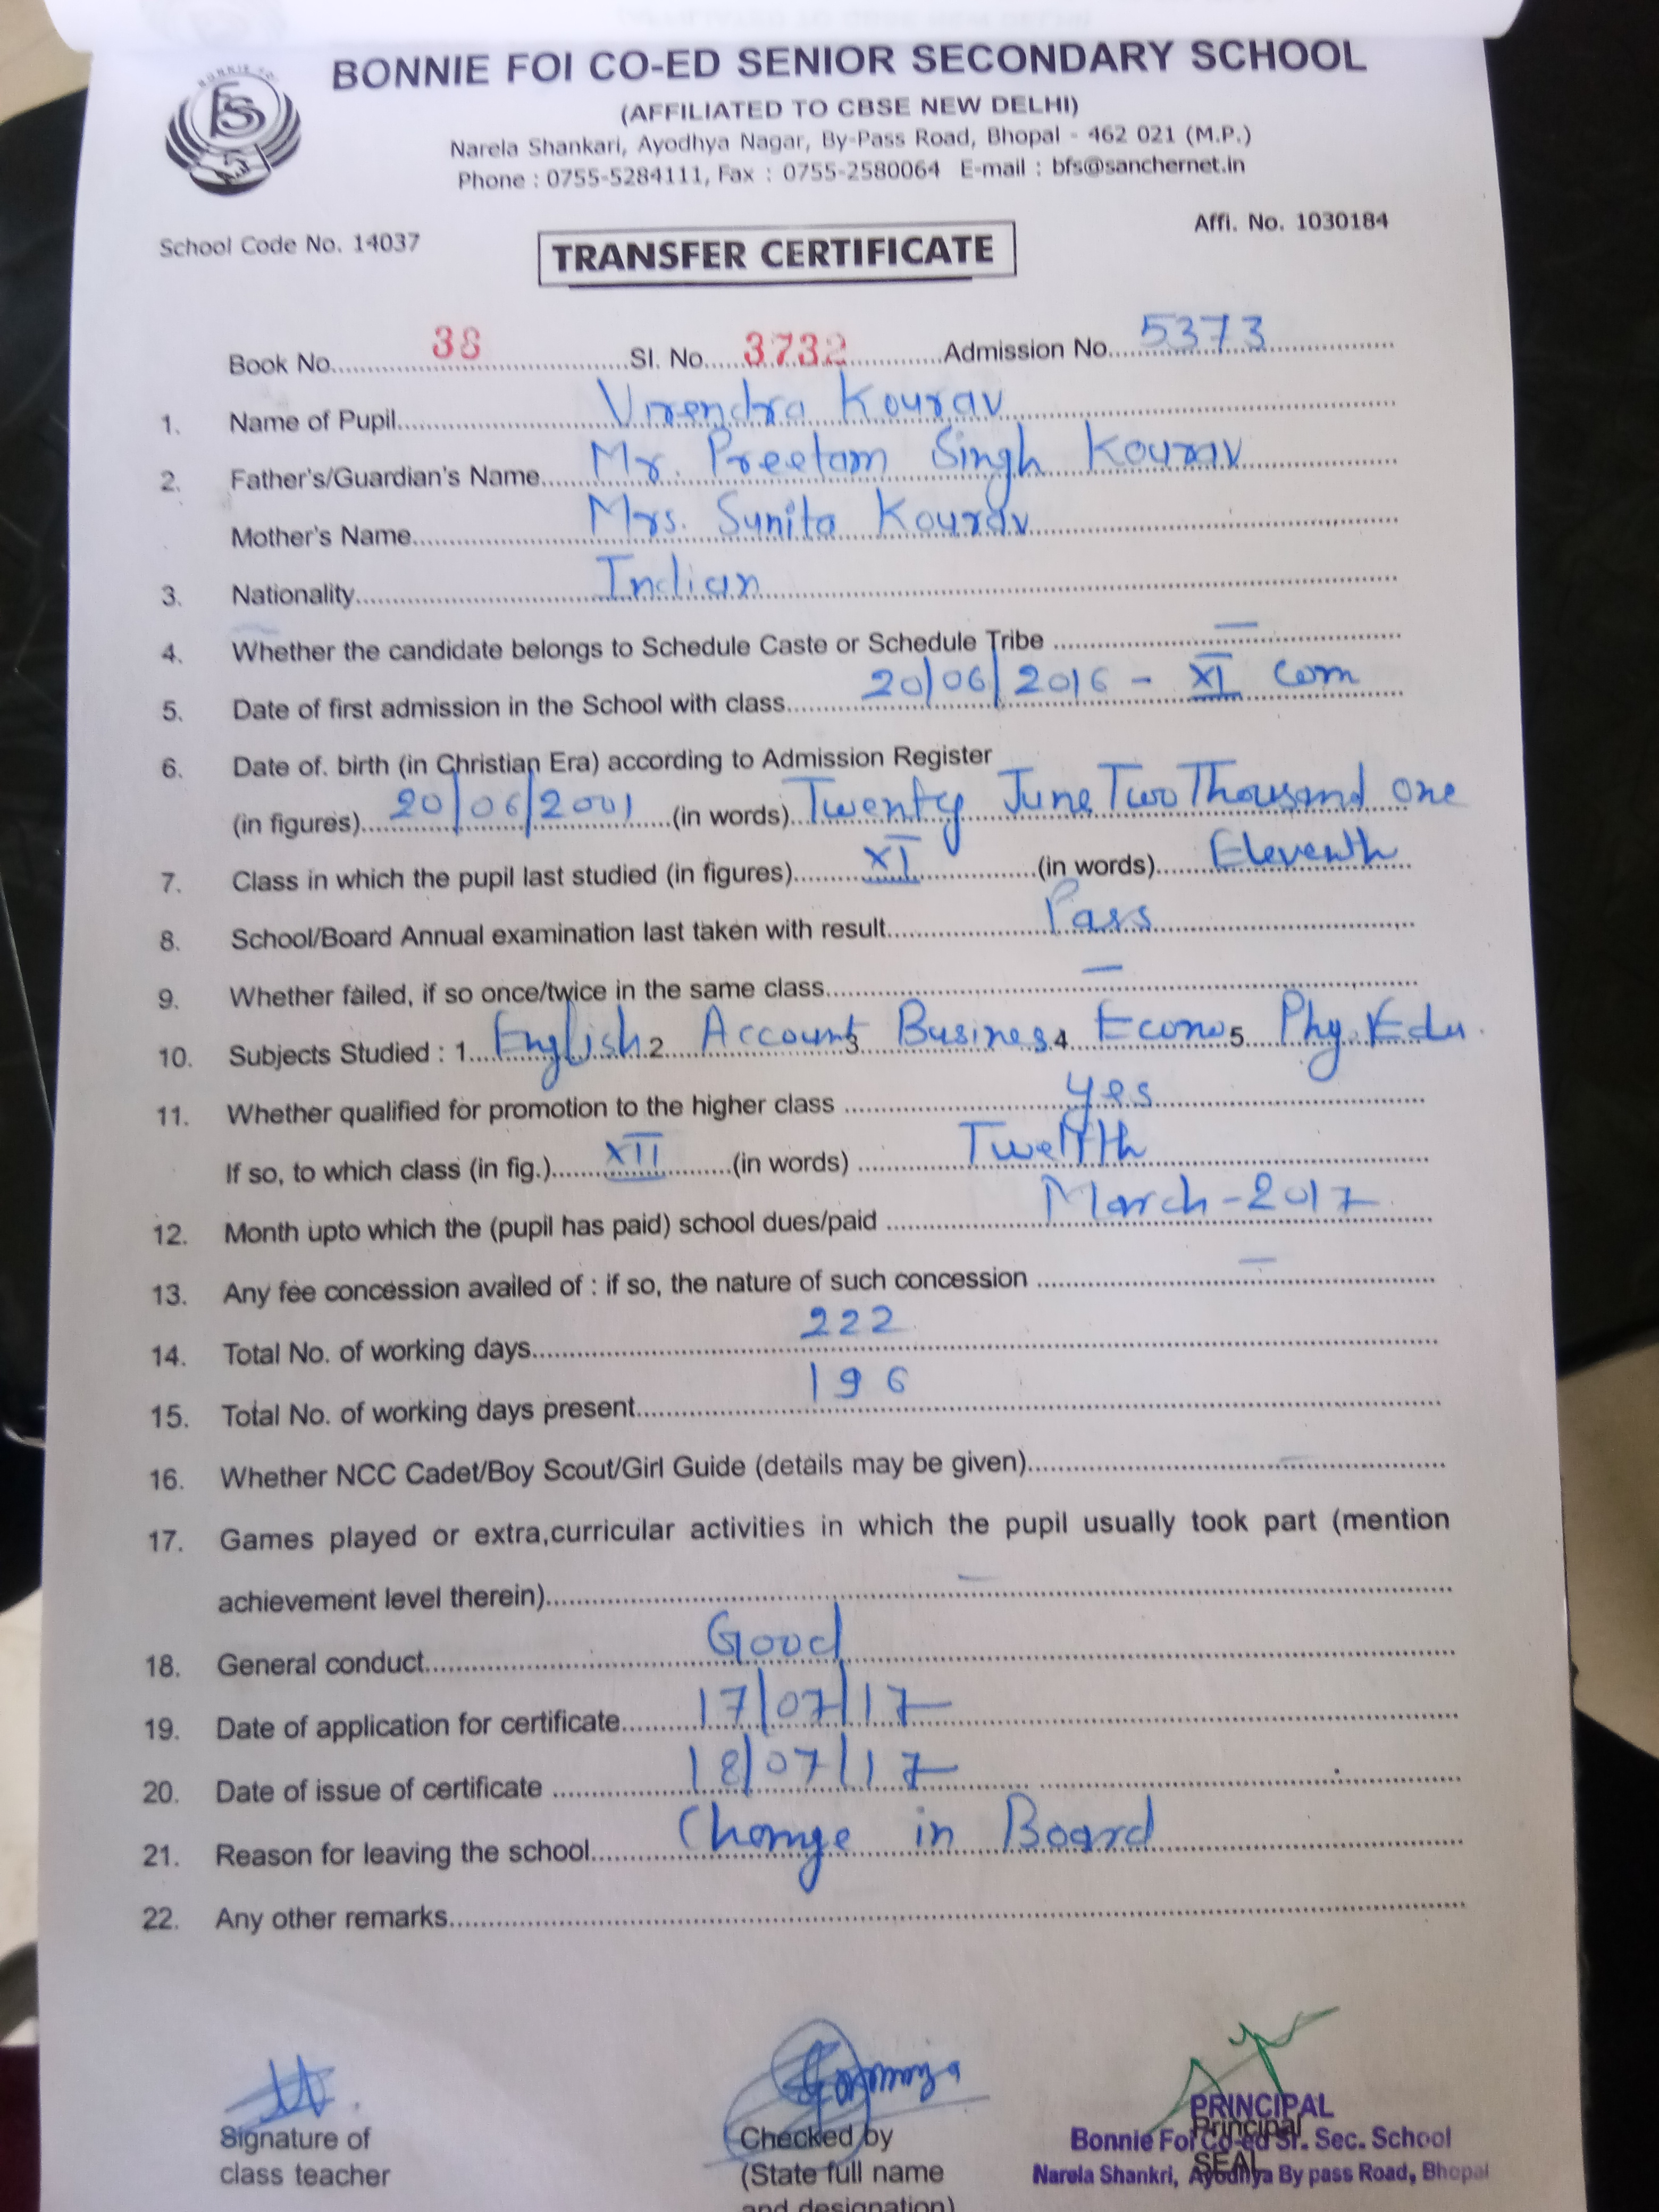 BONNIE FOI CO-ED SENIOR SECONDARY SCHOOL
(AFFILIATED TO CBSE NEW DELHI)
Narela Shankari, Ayodhya Nagar, By-Pass Road, Bhopal - 462 021 (M.P.)
Phone : 0755-5284111, Fax : 0755-2580064 E-mail : bfs@sanchernet.in
School Code No. 14037
Affi. No. 1030184
TRANSFER CERTIFICATE
Book No. 38 Sl. No. 3732 Admission No. 5373
1. Name of Pupil Virendra Kourav
2. Father's/Guardian's Name Mr. Preetam Singh Kourav
Mother's Name Mrs. Sunita Kourav
3. Nationality Indian
4. Whether the candidate belongs to Schedule Caste or Schedule Tribe —
5. Date of first admission in the School with class 20/06/2016 - XI Com
6. Date of. birth (in Christian Era) according to Admission Register
(in figures) 20/06/2001 (in words) Twenty June Two Thousand One
7. Class in which the pupil last studied (in figures) XI (in words) Eleventh
8. School/Board Annual examination last taken with result Pass
9. Whether failed, if so once/twice in the same class —
10. Subjects Studied : 1 English 2 Account 3 Busines 4 Econo 5 Phy. Edu.
11. Whether qualified for promotion to the higher class yes
If so, to which class (in fig.) XII (in words) Twelfth
12. Month upto which the (pupil has paid) school dues/paid March - 2017
13. Any fee concession availed of : if so, the nature of such concession —
14. Total No. of working days 222
15. Total No. of working days present 196
16. Whether NCC Cadet/Boy Scout/Girl Guide (details may be given) —
17. Games played or extra,curricular activities in which the pupil usually took part (mention
achievement level therein) —
18. General conduct Good
19. Date of application for certificate 17/07/17
20. Date of issue of certificate 18/07/17
21. Reason for leaving the school Change in Board
22. Any other remarks
Signature of
class teacher
Checked by
(State full name
and designation)
PRINCIPAL
Principal
Bonnie Foi Co-ed Sr. Sec. School
SEAL
Narela Shankri, Ayodhya By pass Road, Bhopal